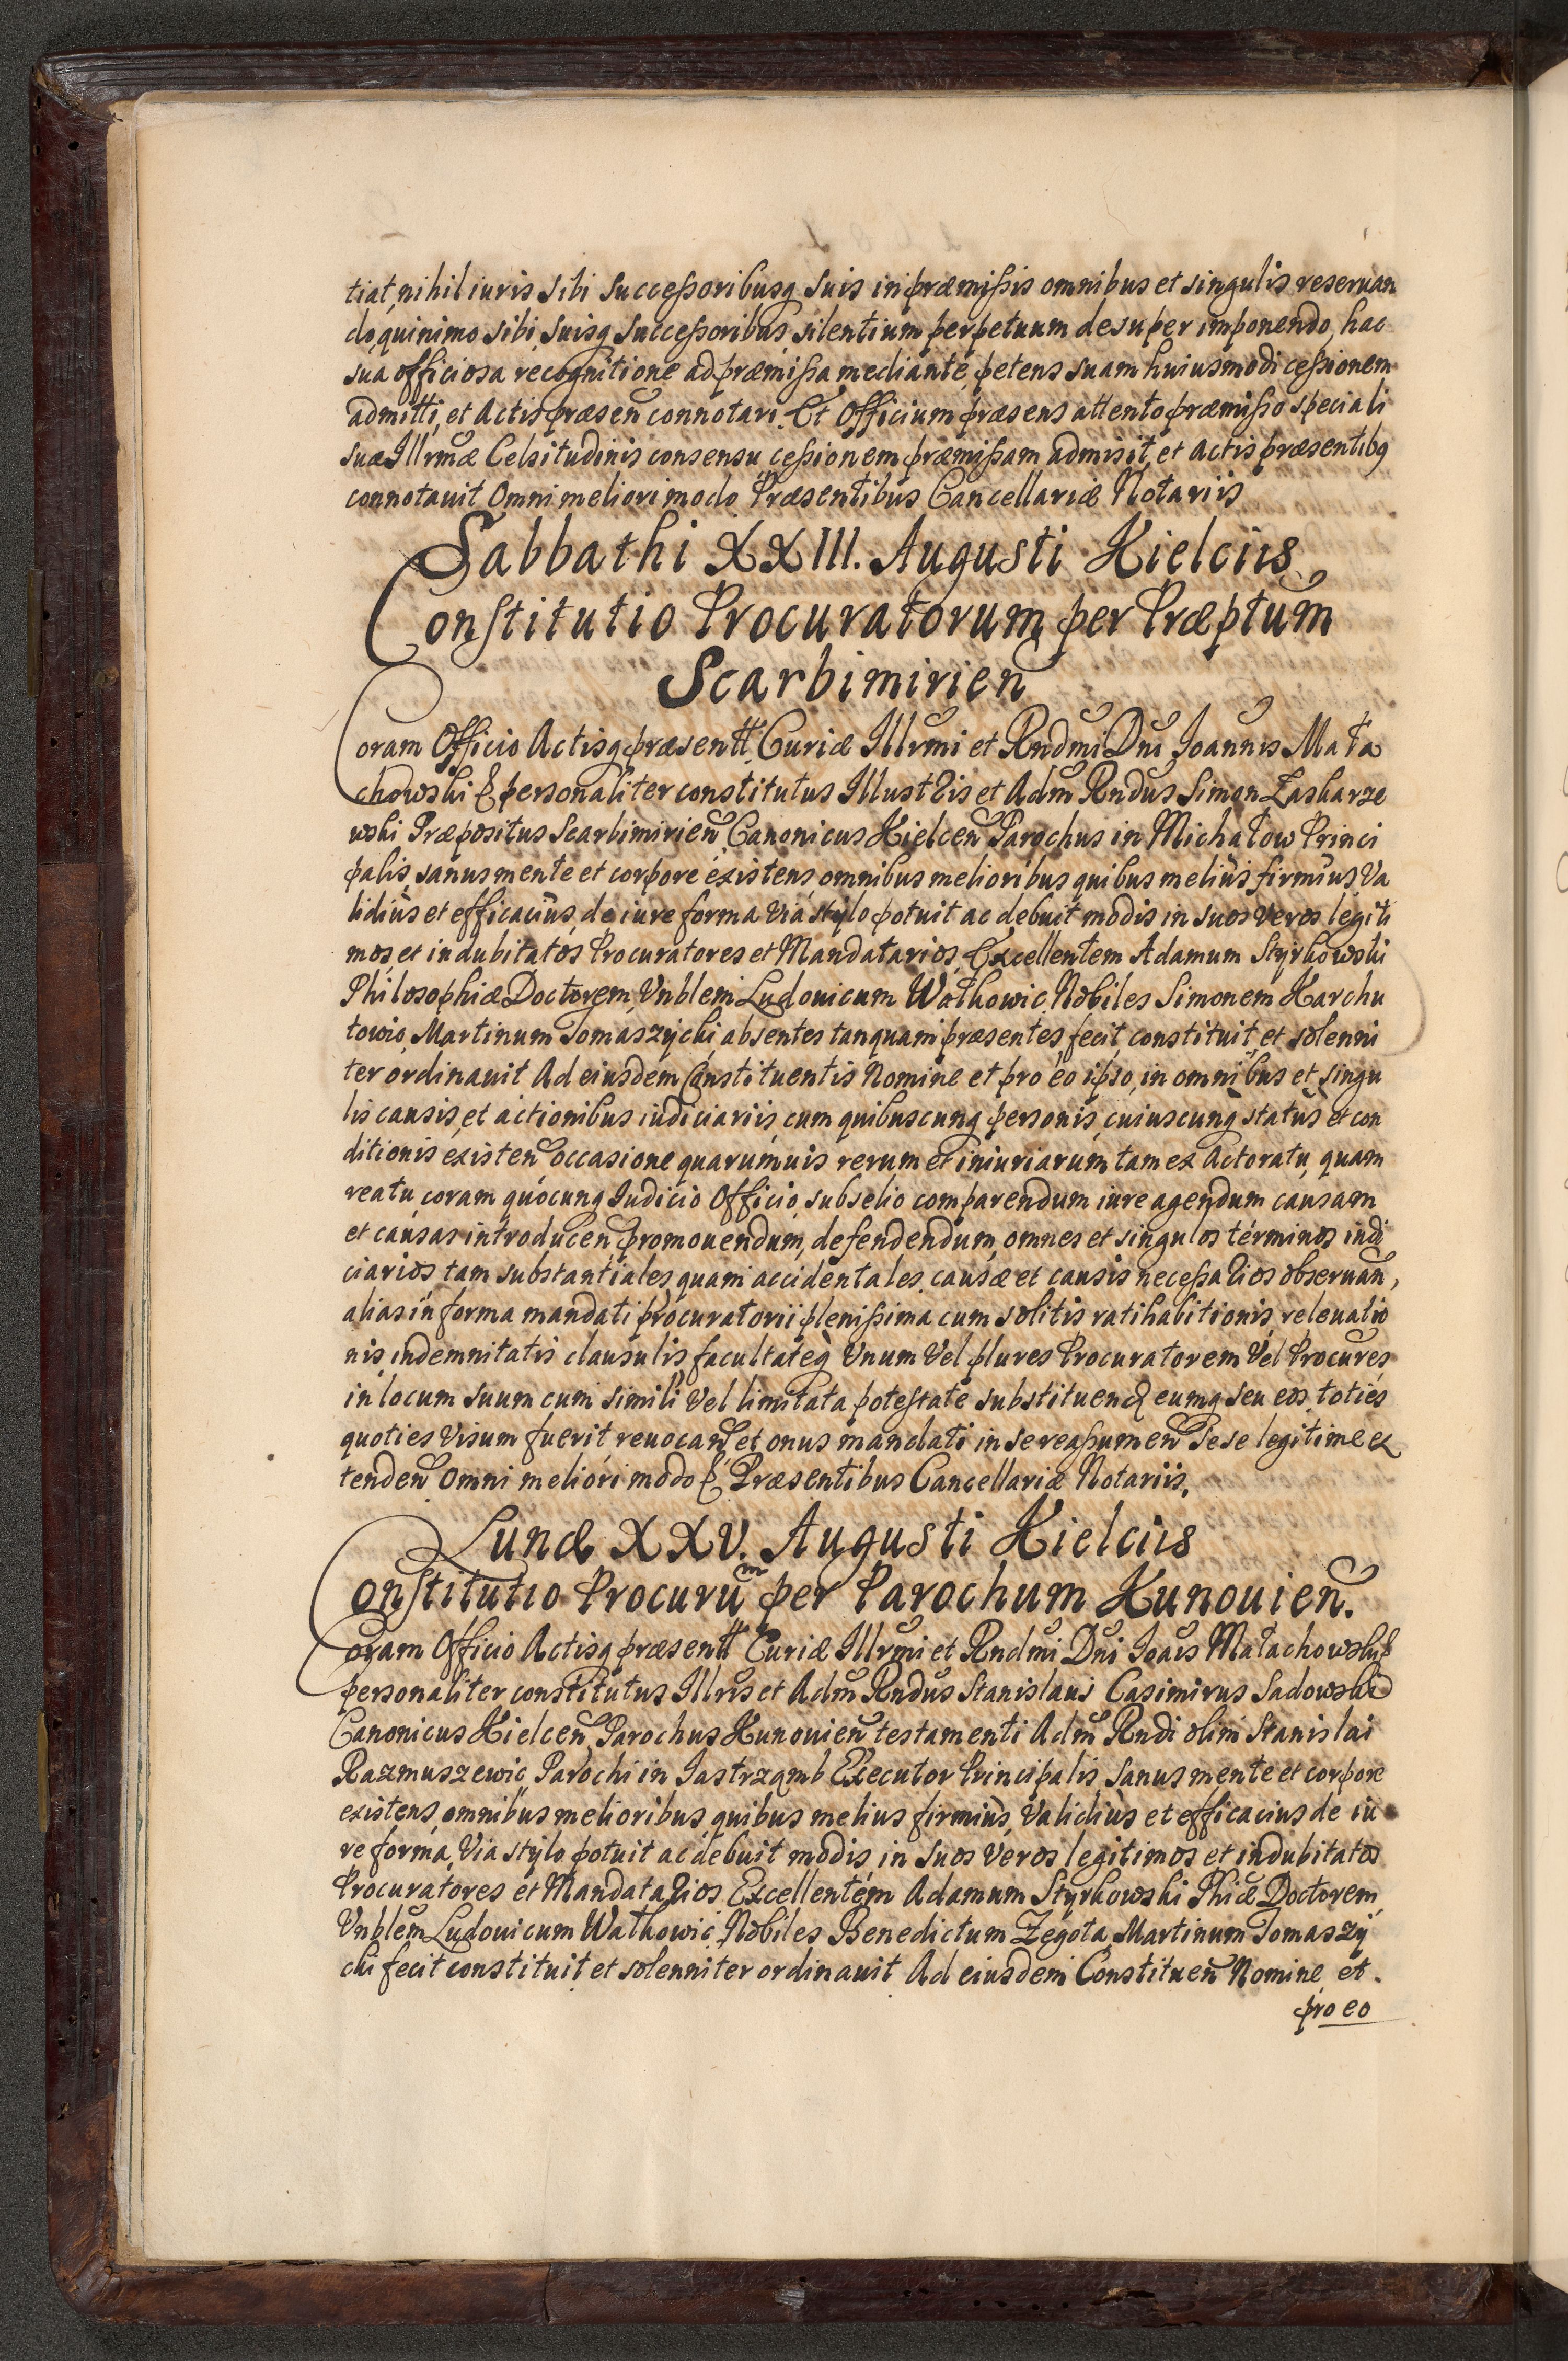 tiat, nihil iuris sibi successoribusq suis in præmissis omnibus et singulis reseruan
do, quinimo sibi suisq successoribus silentium perpetuum desuper imponendo, hac
sua officiosa recognitione ad præmissa mediante, petens suam huiusmodi cessionem
admitti, et Actis præsen connotari. Et Officium præsens attento præmisso speciali
suæ Illrmæ Celsitudinis consensu cessionem præmissam admisit, et Actis præsentibq
connotauit Omni meliori modo Præsentibus Cancellariæ Notariis
Sabbathi XXIII. Augusti Kielciis
Constitutio Procuratorum per Præptum
Scarbimirien
Coram Officio Actisq præsentt Curiæ Illrmi et Rndmi Dni Joannis Mała
chowski & personaliter constitutus Illustris et Adm Rndus Simon Zaskarze
wski Præpositus Scarbimirien Canonicus Kielcen Parochus in Michałow Princi
palis, sanus mente et corpore existens, omnibus melioribus quibus melius firmius Va
lidius et efficacius, de iure forma Via stylo potuit ac debuit modis in suos veros legiti
mos et indubitatos Procuratores et Mandatarios, Excellentem Adamum Styrkowski
Philosophiæ Doctorem, Vnblem Ludouicum Wałkowic Nobiles Simonem Karchu
towic, Martinum Tomaszycki, absentes tanquam præsentes, fecit, constituit, et solenni
ter ordinauit Ad eiusdem Constituentis Nomine et pro eo ipso, in omnibus et singu
lis causis, et actionibus iudiciariis, cum quibuscunq personis, cuiuscunq status et con
ditionis existen occasione quarumuis rerum et iniuriarum, tam ex Actoratu, quam
reatu, coram quocunq Iudicio Officio, subselio comparendum iure agendum causam
et causas introducen promouendum, defendendum, omnes et singulos terminos iudi
ciarios tam substantiales quam accidentales, causæ et causis necessarios obseruan,
alias in forma mandati procuratorii plenissima cum solitis ratihabitionis, releuatio
nis, indemnitatis clausulis, facultateq Vnum Vel plures Procuratorem Vel Procures
in locum suum cum simili Vel limitata potestate substituen & eumq seu eos, toties
quoties Visum fuerit, reuocan et onus mandati in se reassumen sese legitime ex
tenden Omni meliori modo & Præsentibus Cancellariæ Notariis.
Lunæ XXV. Augusti Kielciis
Constitutio Procurum per Parochum Kunouien.
Coram Officio Actisq præsentt Curiæ Illrmi et Rndmi Dni Joais Małachowski &
personaliter constitutus Illris et Adm Rndus Stanislaus Casimirus Sadowski
Canonicus Kielcen, Parochus Kunouien testamenti Adm Rndi olim Stanislai
Razmuszewic, Parochi in Jastrząmb Executor Principalis, Sanus mente et corpore
existens, omnibus melioribus, quibus melius firmius, Validius et efficacius de iu
re forma, Via stylo potuit ac debuit modis, in suos Veros legitimos et indubitatos
Procuratores et Mandatarios, Excellentem Adamum Styrkowski Phiæ Doctorem
Vnblem Ludouicum Wałkowic, Nobiles Benedictum Zegota, Martinum Tomaszy
cki fecit constituit et solenniter ordinauit Ad eiusdem Constituen Nomine, et.
pro eo